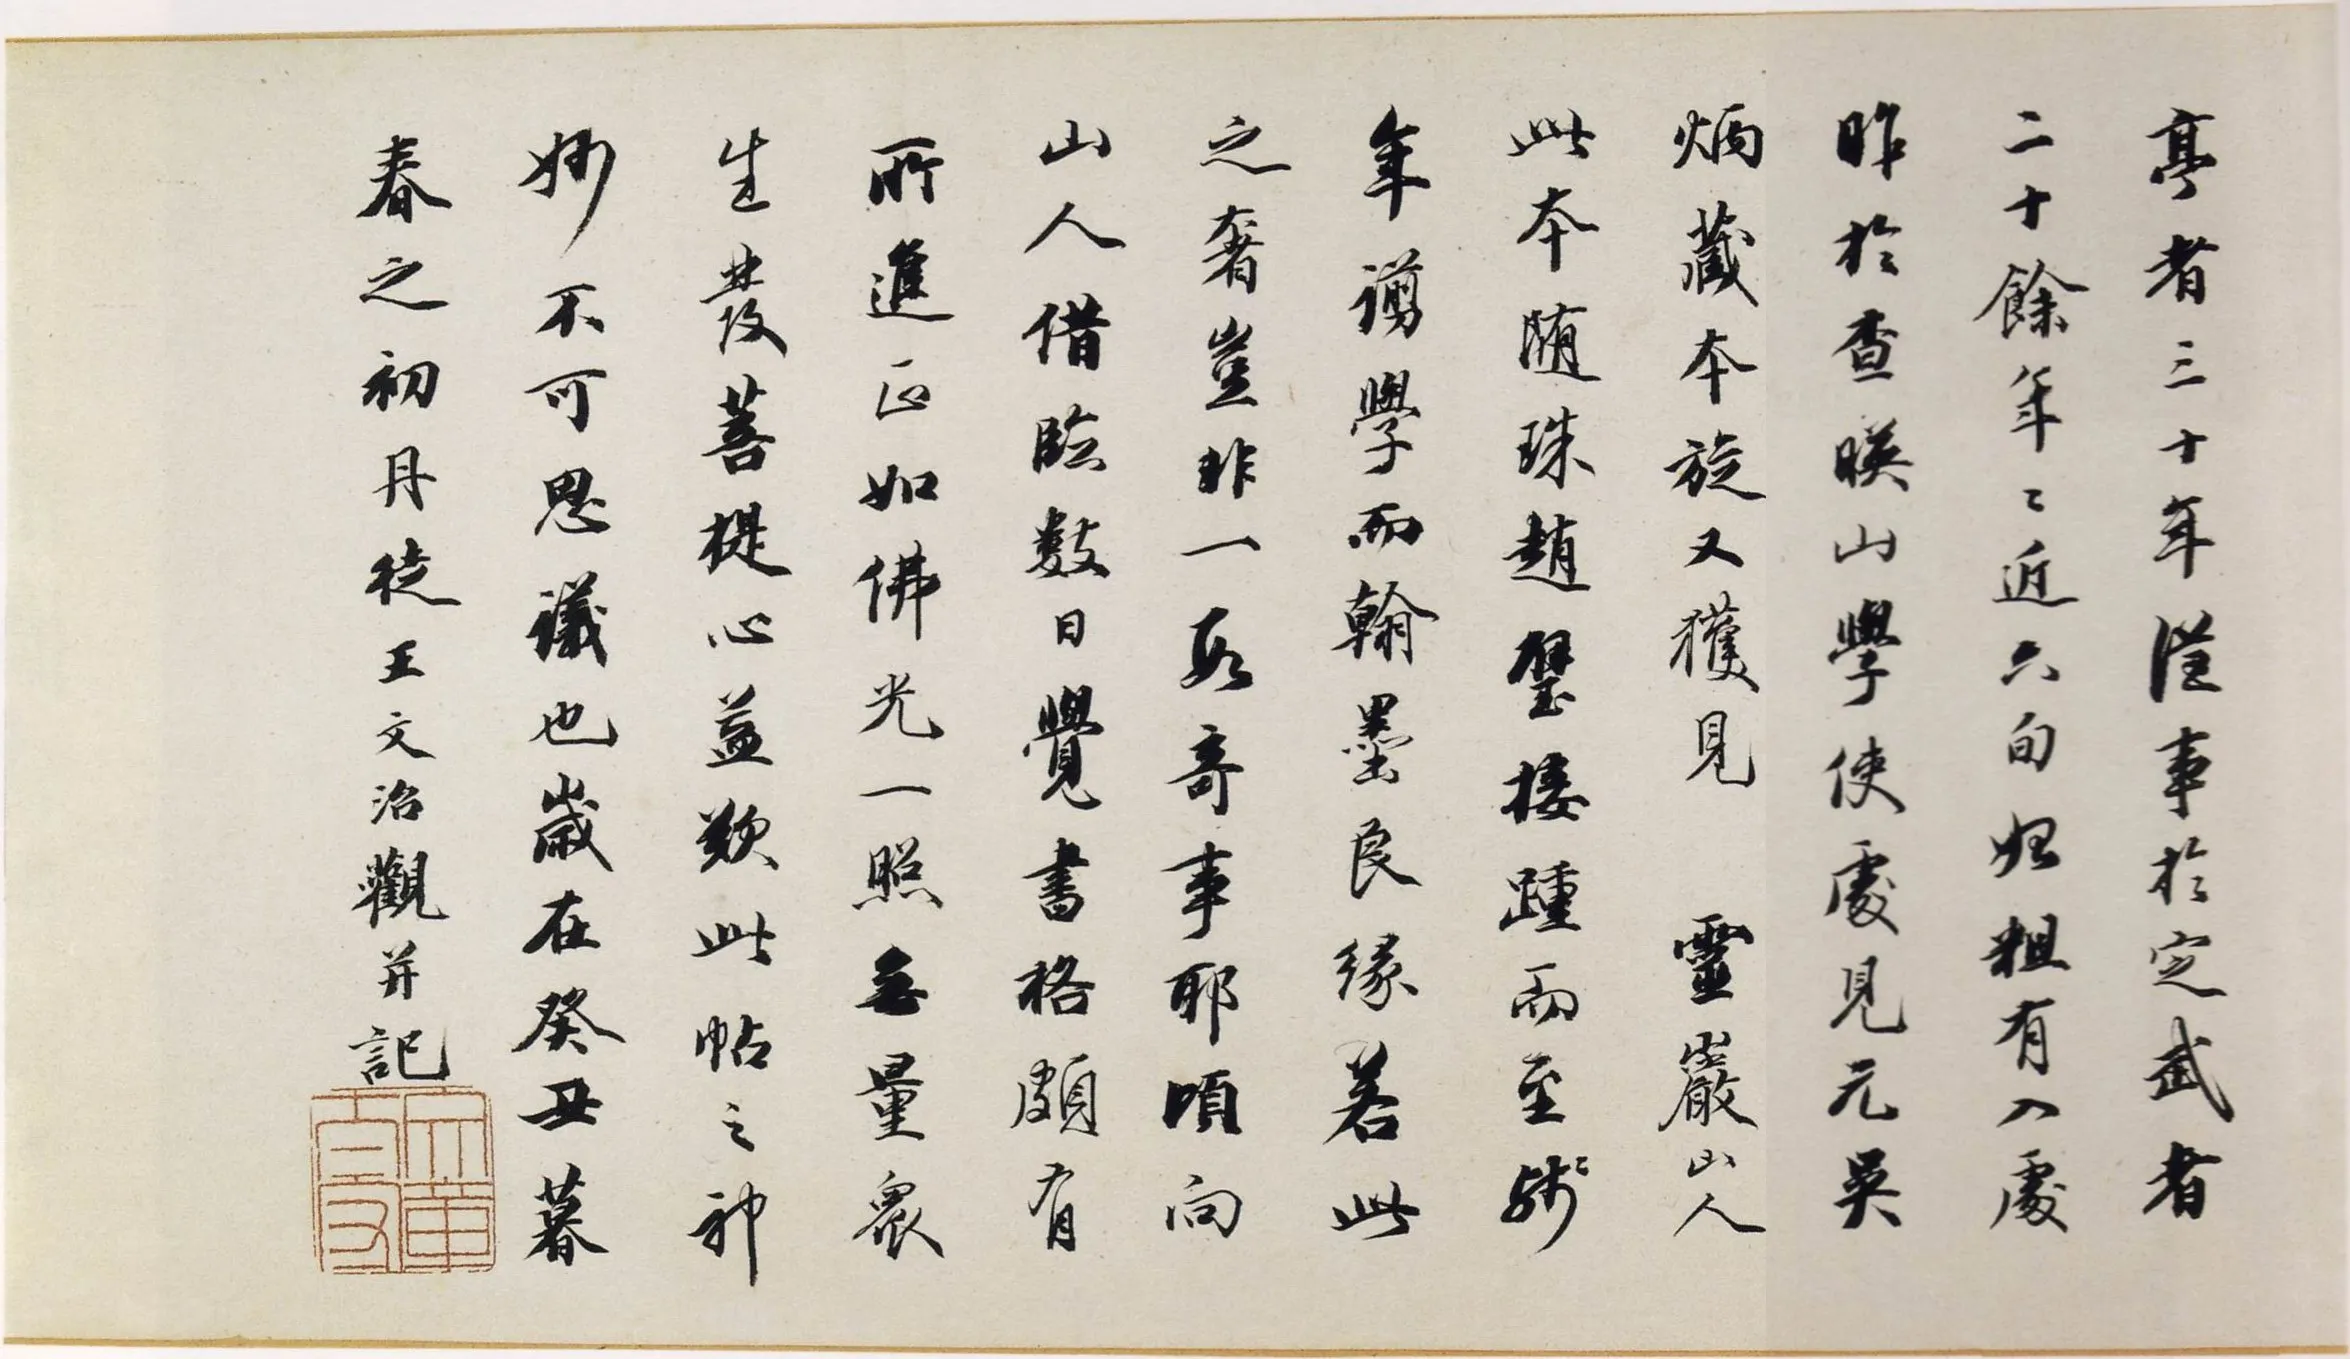 亭者三十年從事於定武者
二十餘年〻近六旬始粗有入處
昨於查暎山學使處見元吳
炳藏本旋又獲見 靈巖山人
此本随珠趙璧接踵而至殘
年謭學而翰墨良緣若此
之奢豈非一段奇事耶頃向
山人借臨數日覺書格頗有
所進正如佛光一照無量眾
生發菩提心益歎此帖之神
妙不可思議也歲在癸丑暮
春之初丹徒王文治觀并記